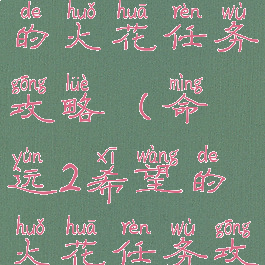 de huǒ huā rèn wù
的火花任务
gōng lüè mìng
攻略(命
yùn xī wàng de
运2希望的
huǒ huā rèn wù gōng
火花任务攻